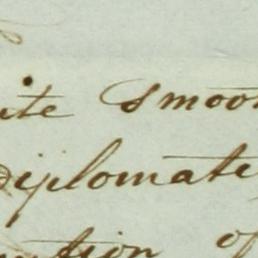 ite smoo
Diplomate
tion of